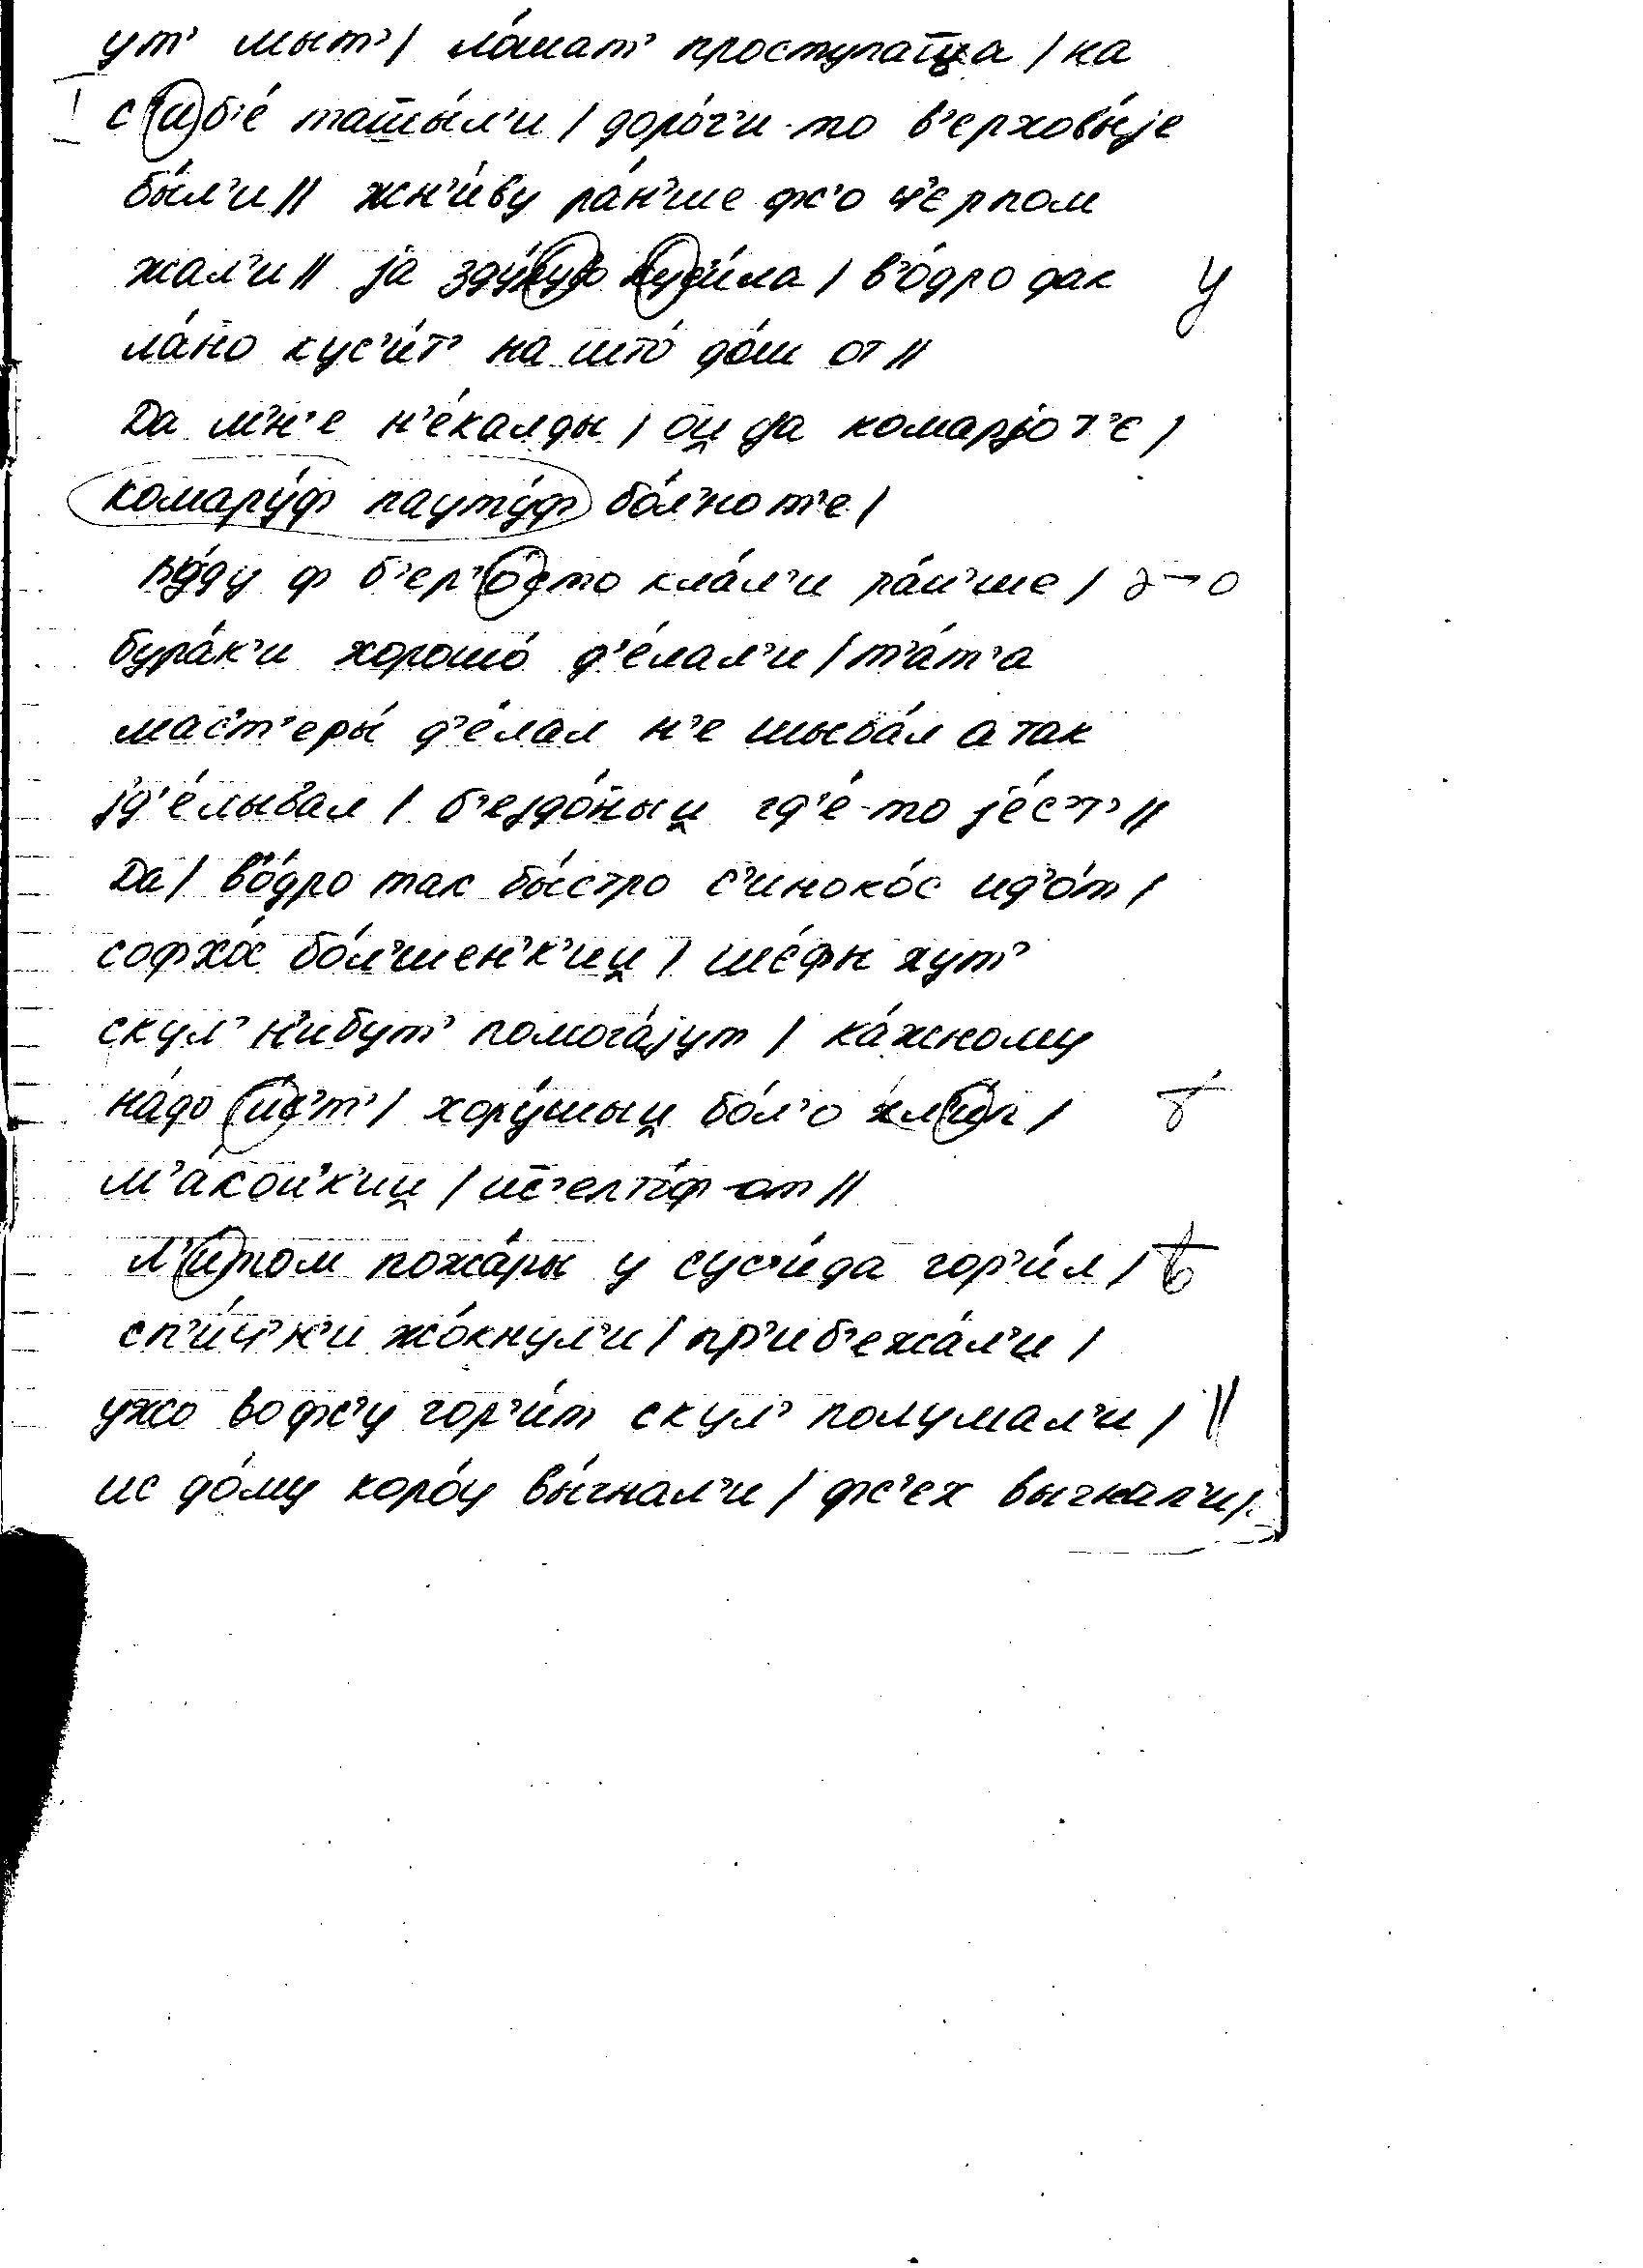 ут' мыт'/ ло́мат' проступат̅ца / на
с'иб'е́ тат̅ы́л'и / доро́г'и-то в'ерховы́jе
бы́л'и // жн'и́ву ра́н'ше фс'о с'е́рпом
жал'и // jа куд'и́ла / в'о́дро дак у
ла́но кус'и́т' на што до́ш от //
Да мн'е н'е́калды / ои̯ да комарjо т'е /
комару́ф пауту́ф бо́л'но т'е /
во́ду ф б'ер'о́сто кла́л'и ра́н'ше / о
бура́к'и хорошо́ д'е́лал'и / т'а́т'а
мас'т'еры́ д'е́лал н'е шыва́л а так
зд'е́лывал / б'ездо́ныи̯ гд'е́-то jе́с'т' //
Да / в'о́дро так бы́стро с'иноко́с ид'о́т /
софхо́с бо́л'шен'к'ии̯ / ше́фы хут'
скул' н'ибут' помога́jут / ка́жному
на́до и́с'т' / хору́шыи̯ бо́л'о хл'и́п / ѣ
м'а́кон'к'ии̯ / от //
Л'и́том пожа́ры у сус'и́да гор'и́л / ѣ
сп'и́ц'к'и жо́кнул'и / пр'иб'ежа́л'и /
ужо вофс'у гор'и́т скул' полумал'и / //
ис до́му коро́у вы́гнал'и / фс'ех выгнал'и /